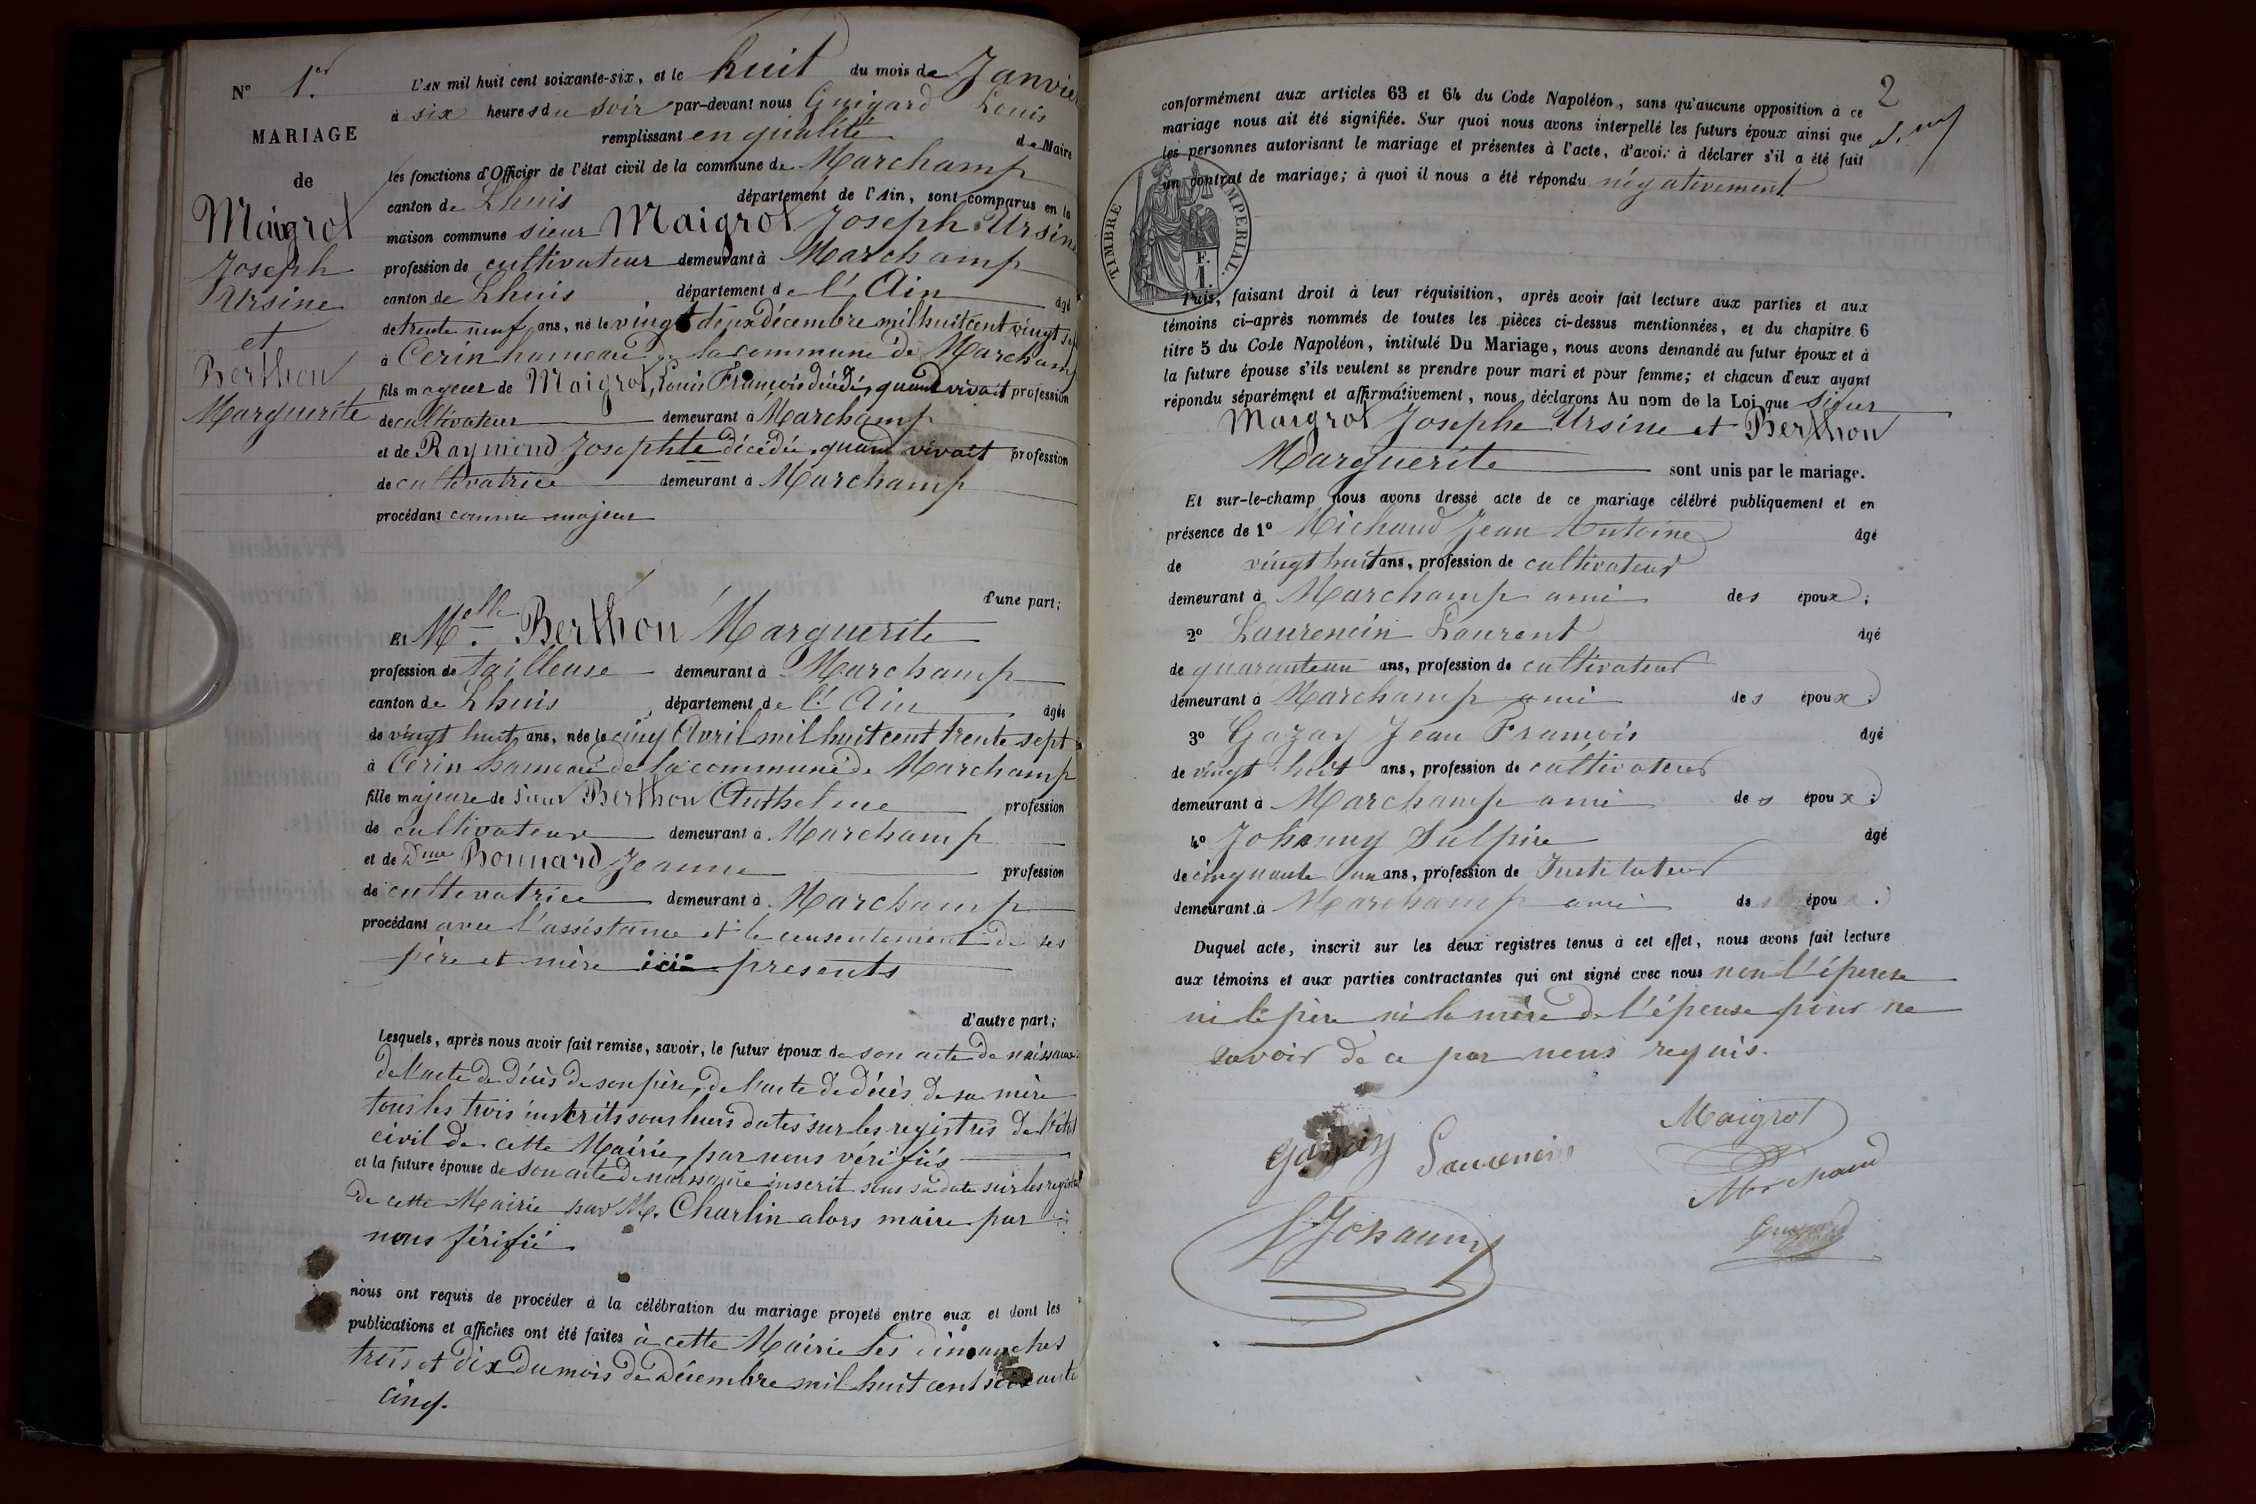 N° 1.er
MARIAGE
de
Maigrot
Joseph
Ursine
et
Berthon
Marguerite
L'AN mil huit cent soixante-six, et le huit du mois de Janvier
à six heures du soir par-devant nous Guigard Louis
remplissant en qualité de Maire
les fonctions d'Officier de l'état civil de la commune de Marchamp
canton de Lhuis département de l'Ain, sont comparus en la
maison commune sieur Maigrot Joseph Ursine
profession de cultivateur demeurant à Marchamp
canton de Lhuis département de l'Ain âgé
de trente neuf ans, né le vingt deux Décembre mil huit cent vingt
à Cerin hameau de la commune de Marchamp
fils mageur de Maigrot, Louis François décédé, quand vivait profession
de cultivateur demeurant à Marchamp
et de Raymond Josephte décédée, quand vivait profession
de cultivatrice demeurant à Marchamp
procédant comme majeur
d'une part;
Et Melle Berthon Marguerite
profession de tailleuse demeurant à Marchamp
canton de Lhuis, département de l'Ain âgée
de vingt huit ans, née le cinq Avril mil huit cent trente sept
à Cerin hameau de la commune de Marchamp
fille majeure de sieur Berthon Anthelme profession
de cultivateur demeurant à Marchamp
et de Dme Bonnard Jeanne profession
de cultivatrice demeurant à Marchamp
procédant avec l'assistance et le consentement de ses
père et mère ici presents
d'autre part;
Lesquels, après nous avoir fait remise, savoir, le futur époux de son acte de naissance
de l'acte de décès de son père, de l'acte de décès de sa mère
tous les trois inscrits sous leurs dates sur les registres de l'état
civil de cette Mairie, par nous vérifiés
et la future épouse de son acte de naissance inscrit sous sa date sur les registres
de cette Mairie par M. Charlin alors maire par
nous férifié
nous ont requis de procéder à la célébration du mariage projeté entre eux et dont les
publications et affiches ont été faites à cette Mairie les dimanches
trois et dix du mois de Décembre mil huit cent soixante
cinq.
2
conformément aux articles 63 et 64 du Code Napoléon, sans qu'aucune opposition à ce
mariage nous ait été signifiée. Sur quoi nous avons interpellé les futurs époux ainsi que
les personnes autorisant le mariage et présentes à l'acte, d'avoir à déclarer s'il a été fait
un contrat de mariage; à quoi il nous a été répondu négativement
TIMBRE IMPERIAL.
F.
1
Puis, faisant droit à leur réquisition, après avoir fait lecture aux parties et aux
témoins ci-après nommés de toutes les pièces ci-dessus mentionnées, et du chapitre 6
titre 5 du Code Napoléon, intitulé Du Mariage, nous avons demandé au futur époux et à
la future épouse s'ils veulent se prendre pour mari et pour femme; et chacun d'eux ayant
répondu séparément et affirmativement, nous déclarons Au nom de la Loi que sieur
Maigrot Josephe Ursine et Berthon
Marguerite sont unis par le mariage.
Et sur-le-champ nous avons dressé acte de ce mariage célébré publiquement et en
présence de 1° Michaud Jean Antoine âgé
de vingt huit ans, profession de cultivateur
demeurant à Marchamp ami des époux;
2° Laurencin Laurent âgé
de quarante un ans, profession de cultivateur
demeurant à Marchamp ami des époux;
3° Gazay Jean François âgé
de vingt huit ans, profession de cultivateur
demeurant à Marchamp ami des époux;
4° Johanny Sulpice âgé
de cinquante un ans, profession de Instituteur
demeurant à Marchamp ami des époux.
Duquel acte, inscrit sur les deux registres tenus à cet effet, nous avons fait lecture
aux témoins et aux parties contractantes qui ont signé avec nous non l'épouse
ni le père ni la mère de l'épouse pour ne
savoir de ce par nous requis.
Maigrot
Gazay Laurencin
Michaud
S Johanny
Guigard